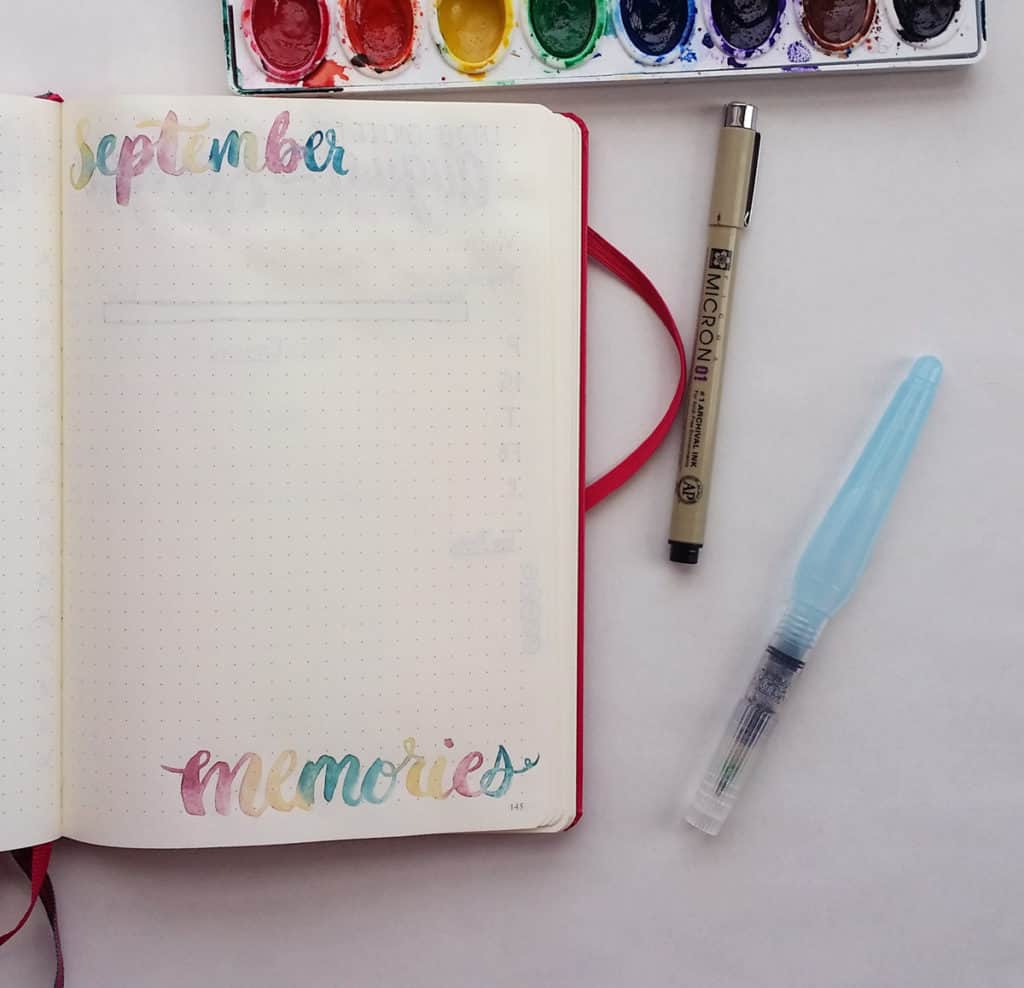 september
PIGMA
MICRON 01
#1 ARCHIVAL INK
AP
memories
145